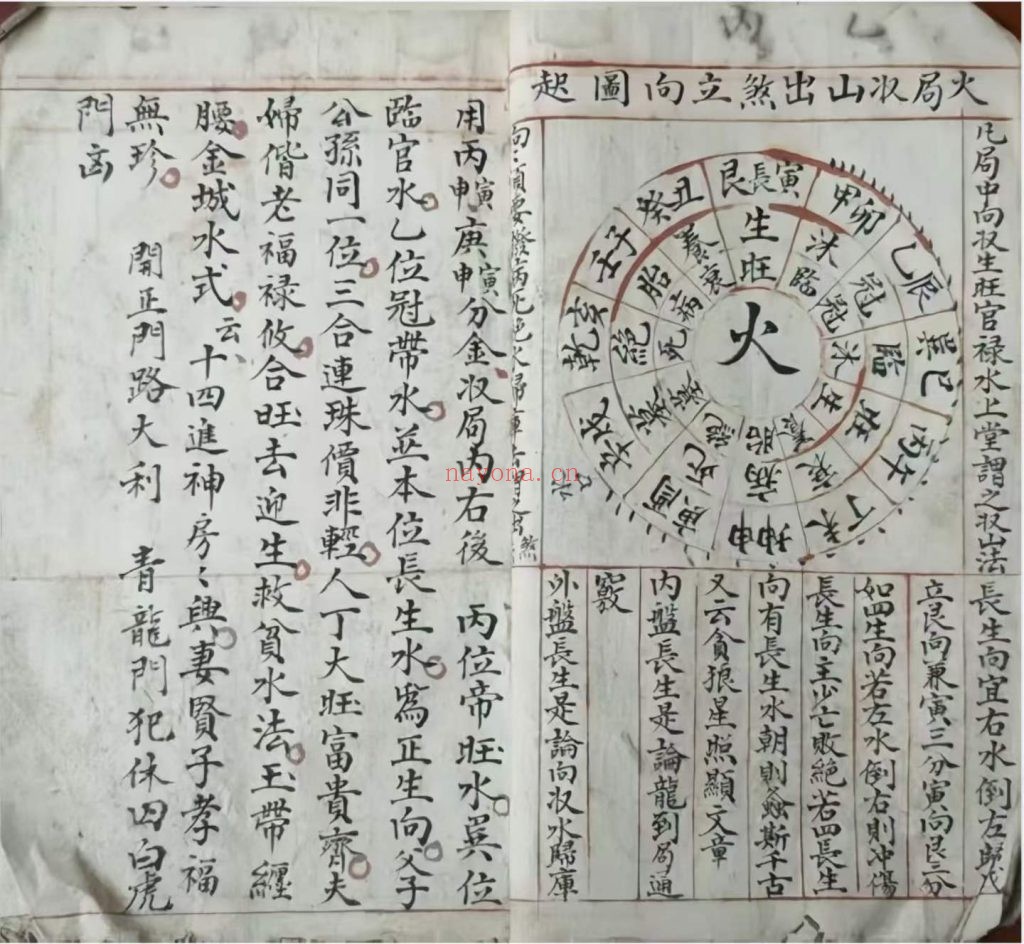 火局収山出煞立向圖起
凢局中向収生旺官禄水上堂謂之収山法
長生向宜右水倒左歸戌
立艮向兼寅三分寅向艮三分
如四生向若左水倒右則冲傷
長生向主少亡敗絶若四長生
向有長生水朝則螽斯千古
又云貪狼星照顯文章
内盤長生是論龍到局通
竅
外盤長生是論向収水歸庫
火
艮長寅
甲卯
乙辰
巽巳
丙午
丁未
坤申
庚酉
辛戌
乾亥
壬子
癸丑
生
沐
冠
臨
旺
衰
病
死
墓
絶
胎
養
旺
臨
冠
沐
生
養
胎
絶
墓
死
病
衰
用丙寅丙申庚寅庚申分金収局内右後　丙位帝旺水巽位
臨官水乙位冠帶水並本位長生水為正生向父子
公孫同一位三合連珠價非輕人丁大旺富貴齊夫
婦偕老福禄攸合旺去迎生救貧水法玉帶纏
腰金城水式云十四進神房〻興妻賢子孝福
無珍　開正門路大利　青龍門犯休囚白虎
門凶
nayona.cn